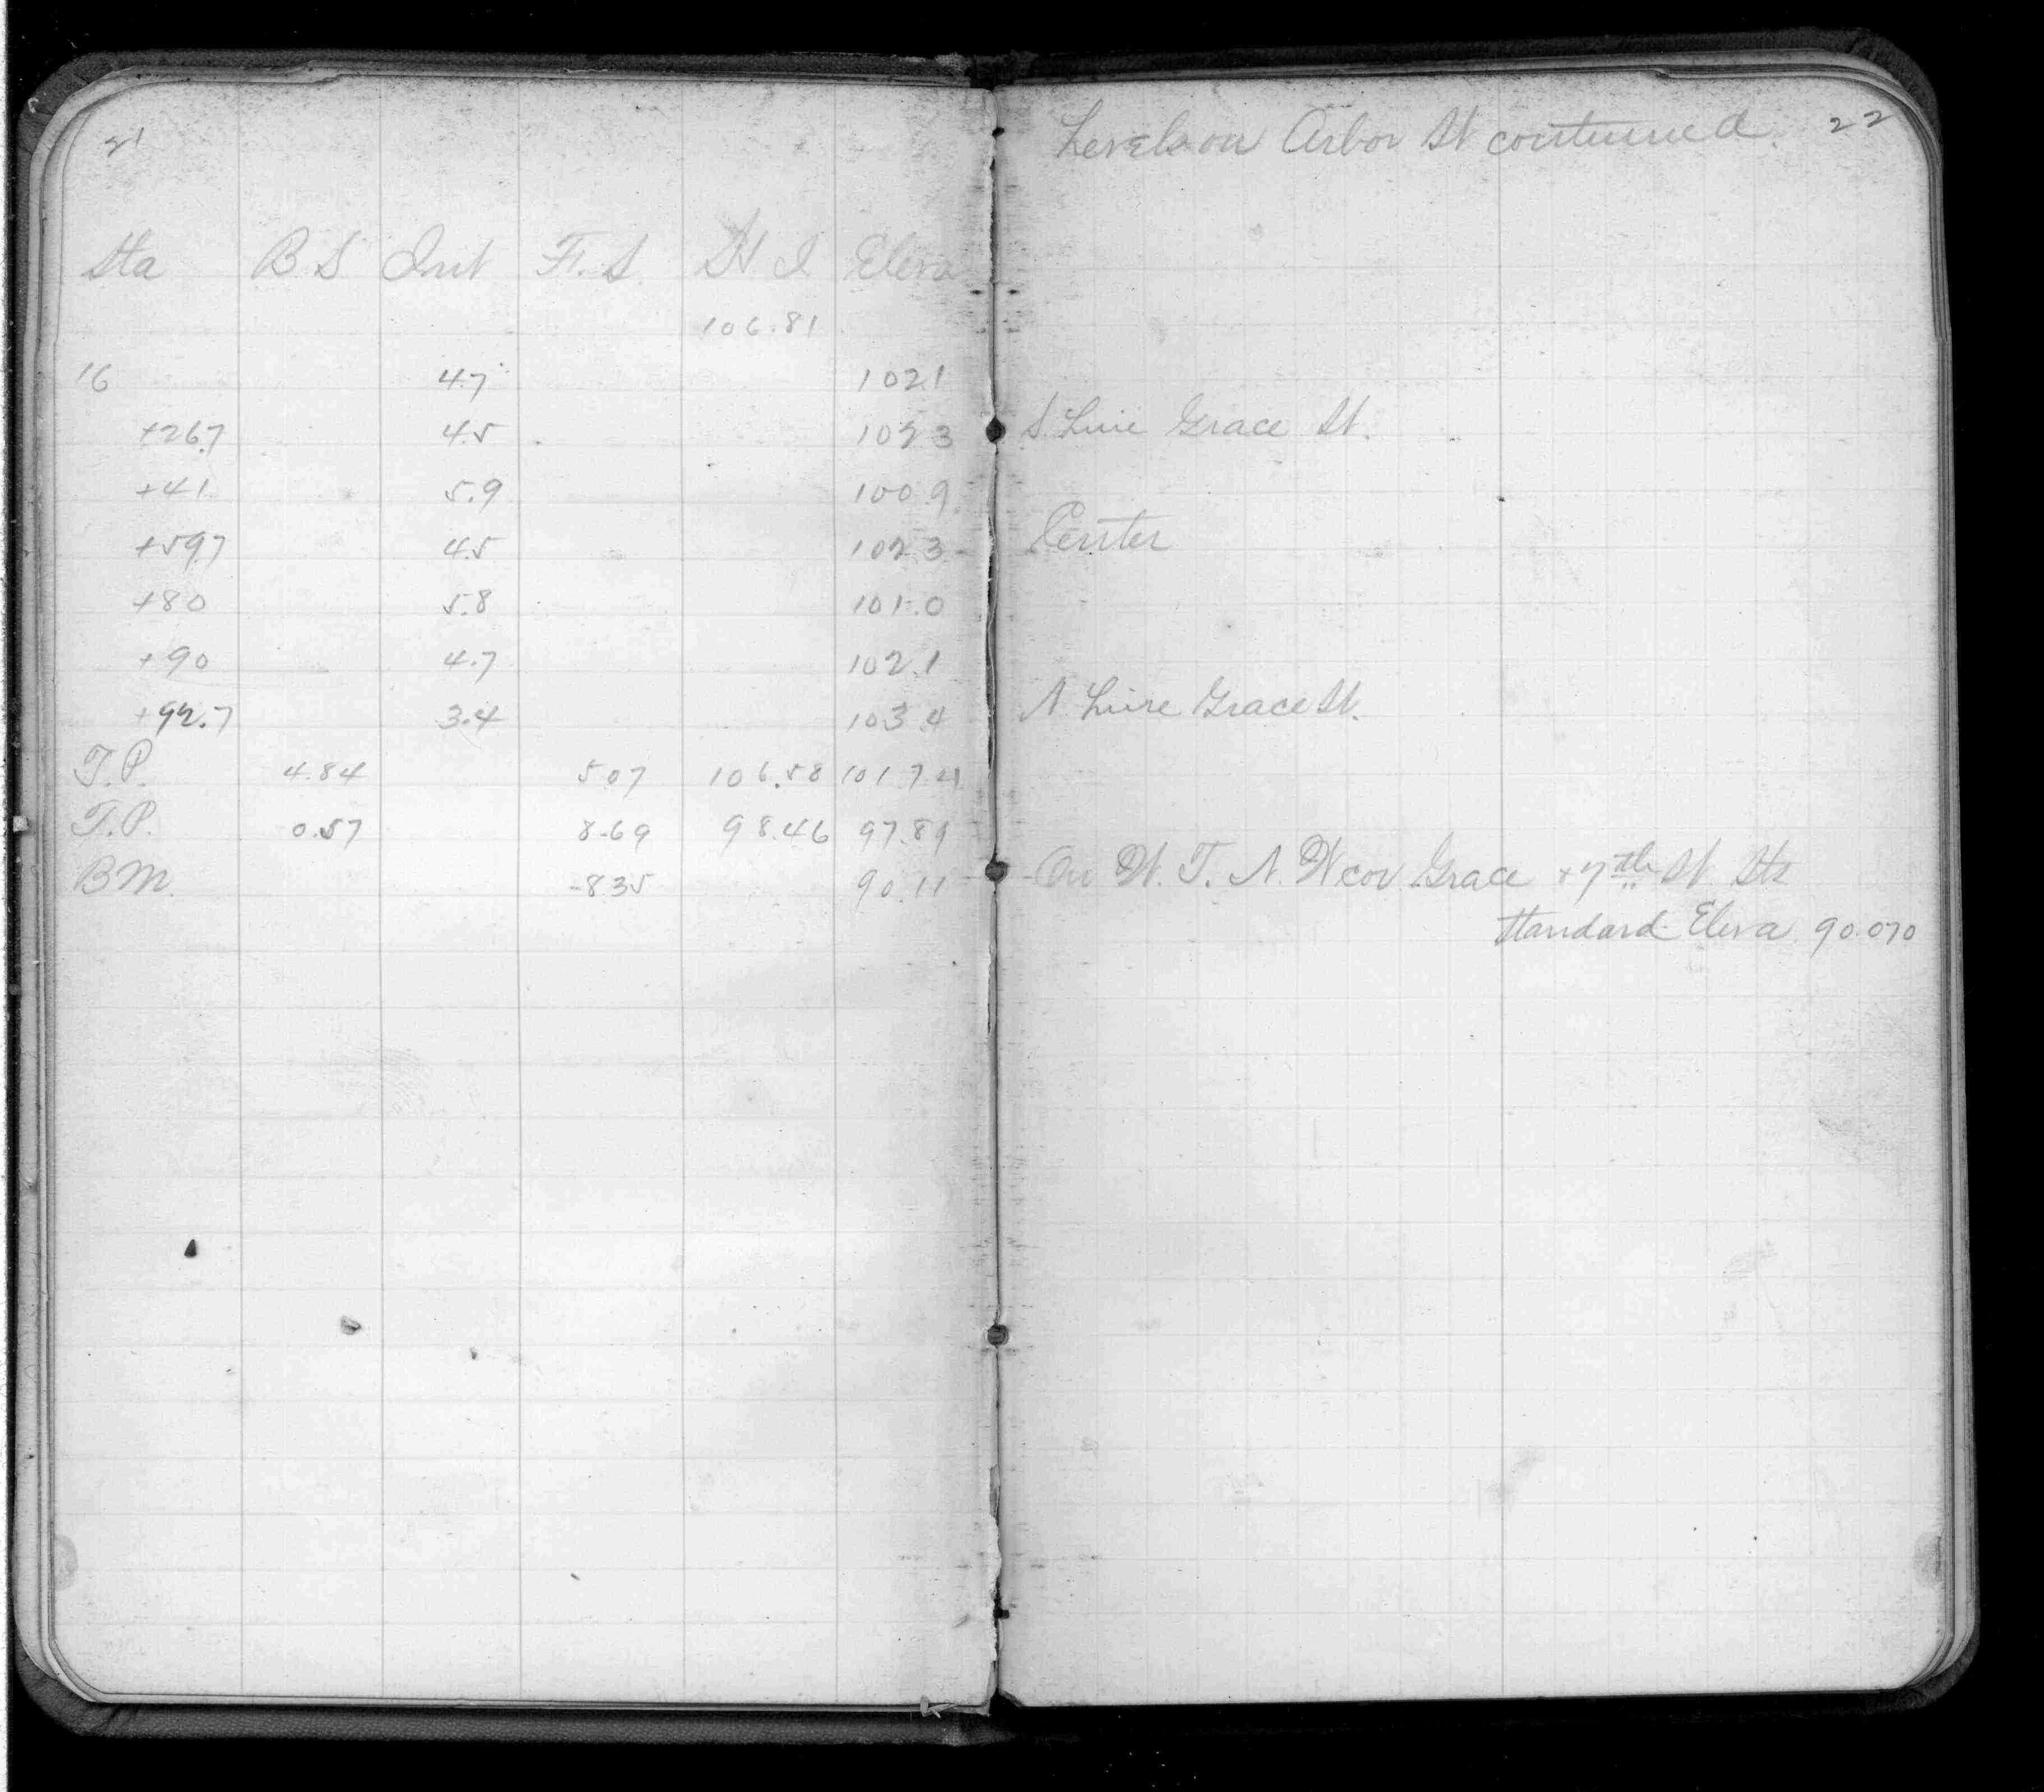 21
Sta B S Int F. S. H I Eleva
106.81
16 4.7 102.1
+26.7 4.5 102.3
+41 5.9 100.9
+59.7 4.5 102.3
+80 5.8 101.0
+90 4.7 102.1
+92.7 3.4 103.4
T.P. 4.84 5.07 106.58 101.74
T.P. 0.57 8.69 98.46 97.89
B.M. 8.35 90.11
Levels on Arbor St continued. 22
S. Line Grace St.
Center
N. Line Grace St.
On W. T. N. W cor Grace + 7th St. Sts
Standard Eleva 90.070